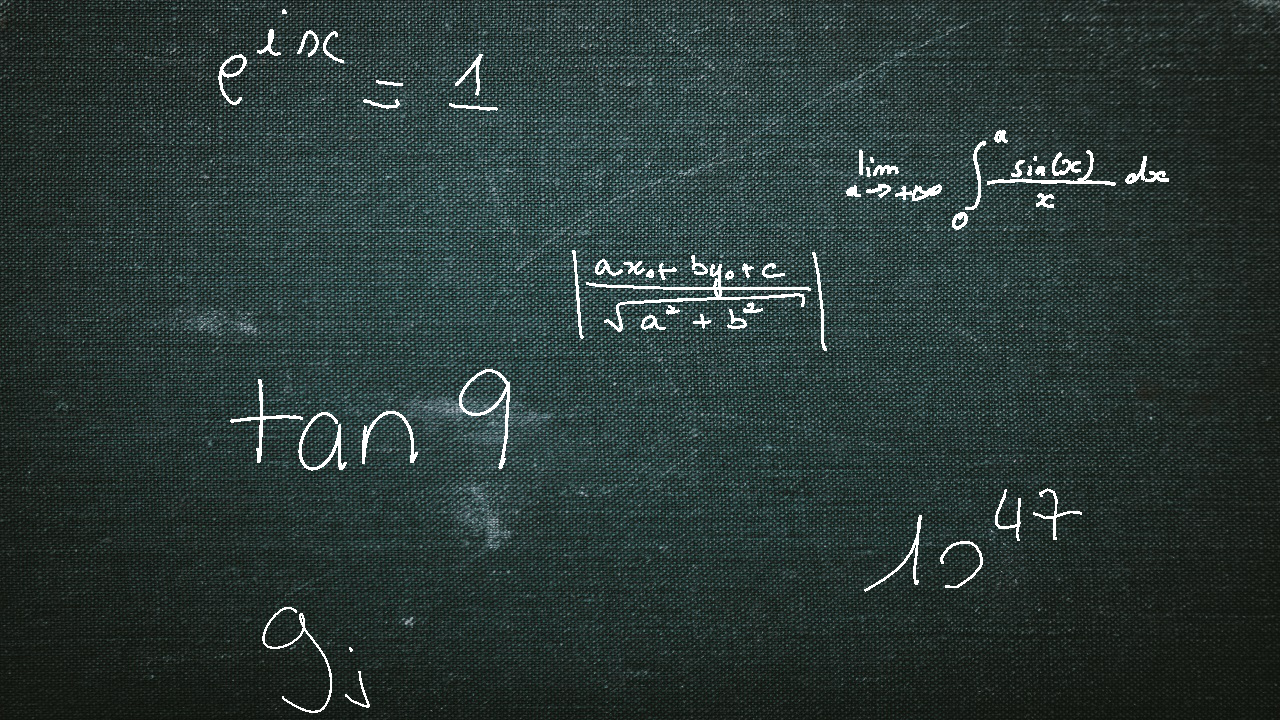 e^{ix} = 1
lim_{a→+∞} ∫_0^a sin(x)/x dx
|(ax₀ + by₀ + c)/√(a² + b²)|
tan 9
10^{47}
g_j